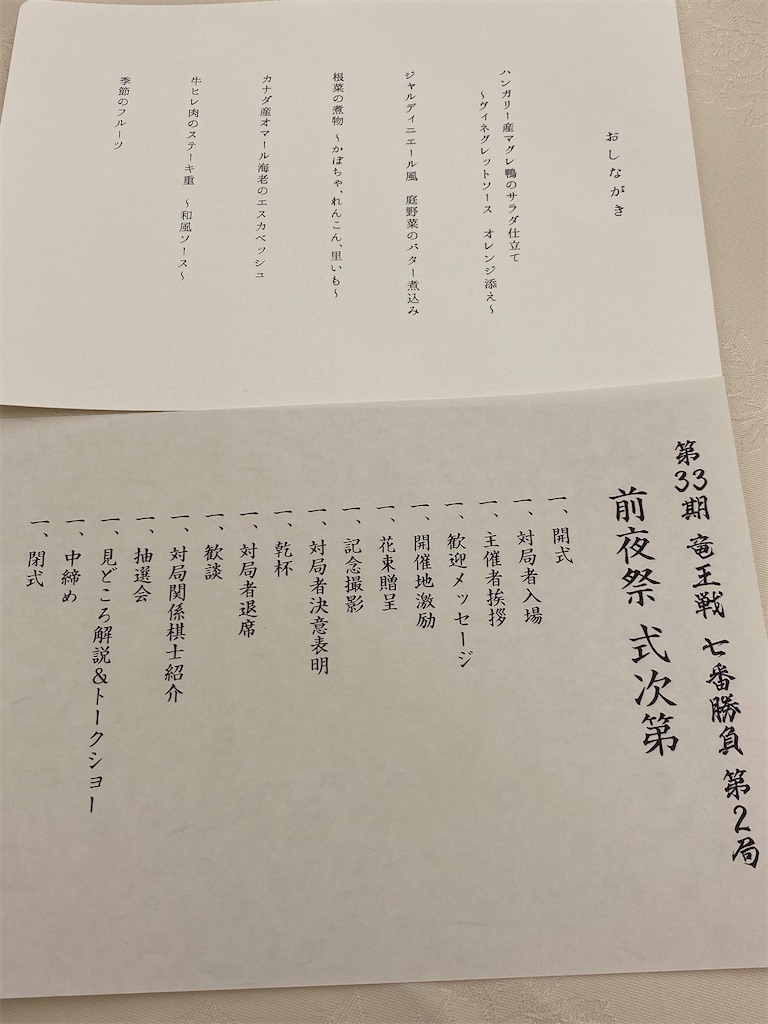 おしながき
ハンガリー産マグレ鴨のサラダ仕立て
～ヴィネグレットソース　オレンジ添え～
ジャルディニエール風　庭野菜のバター煮込み
根菜の煮物　～かぼちゃ、れんこん、里いも～
カナダ産オマール海老のエスカベッシュ
牛ヒレ肉のステーキ重　～和風ソース～
季節のフルーツ
第33期 竜王戦 七番勝負 第2局
前夜祭 式次第
一、開式
一、対局者入場
一、主催者挨拶
一、歓迎メッセージ
一、開催地激励
一、花束贈呈
一、記念撮影
一、対局者決意表明
一、乾杯
一、対局者退席
一、歓談
一、対局関係棋士紹介
一、抽選会
一、見どころ解説&トークショー
一、中締め
一、閉式